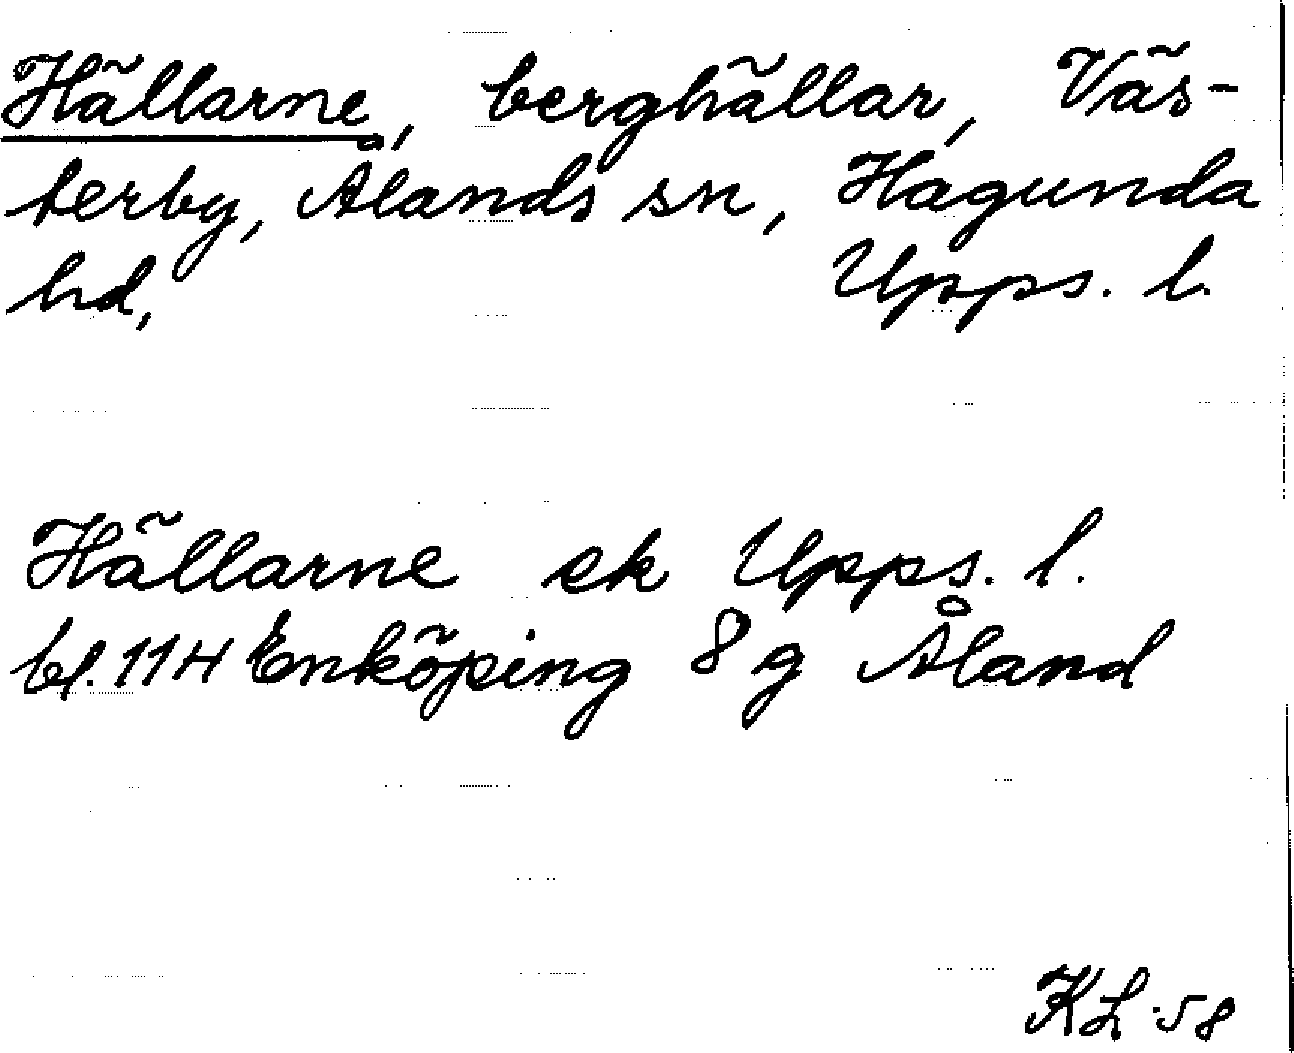 Hällarne, berghällar, Väs-
terby, Ålands sn, Hagunda
hd, Upps. l.
Hällarne ek Upps. l.
bl. 11H Enköping 8 g Åland
KL -58